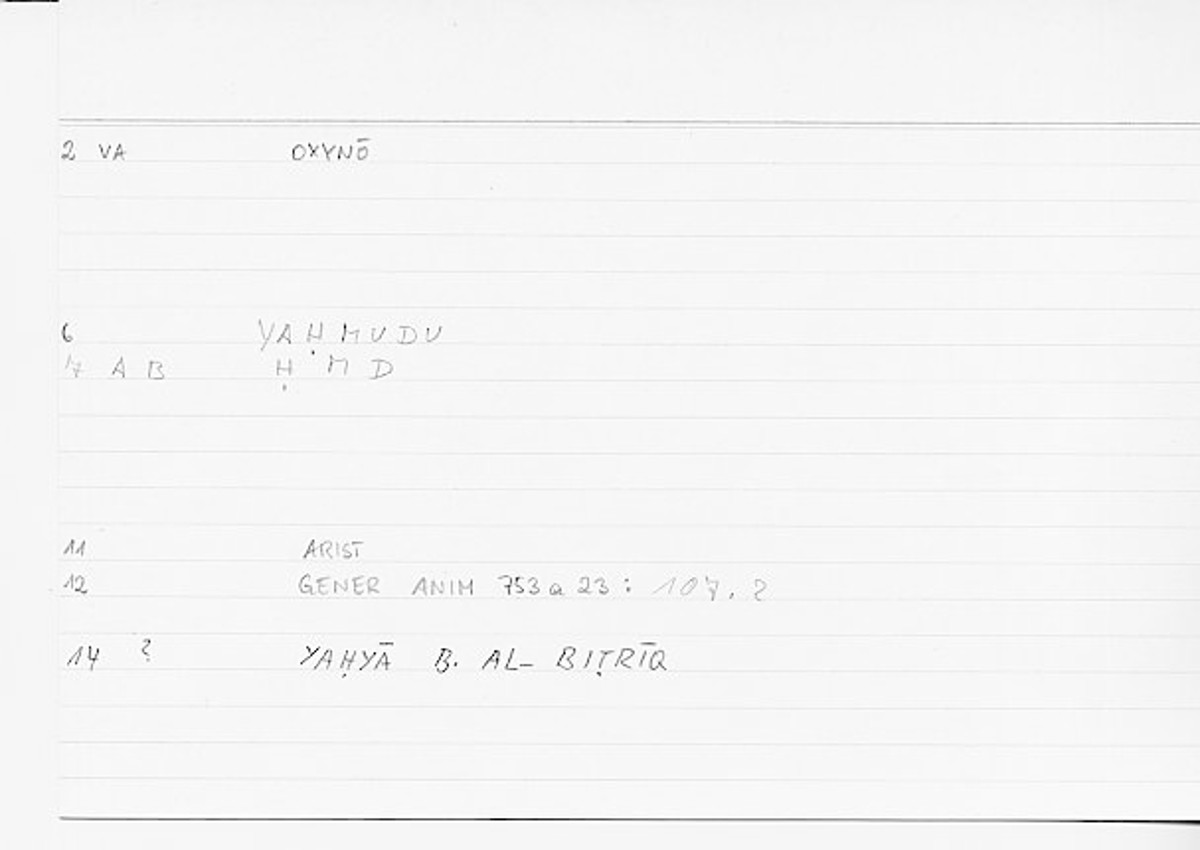 2 VA OXYNŌ
6 YAḤMUDU
7 A B Ḥ M D
11 ARIST
12 GENER ANIM 753 a 23 : 107. 2
14 ? YAḤYĀ B. AL- BIṬRĪQ